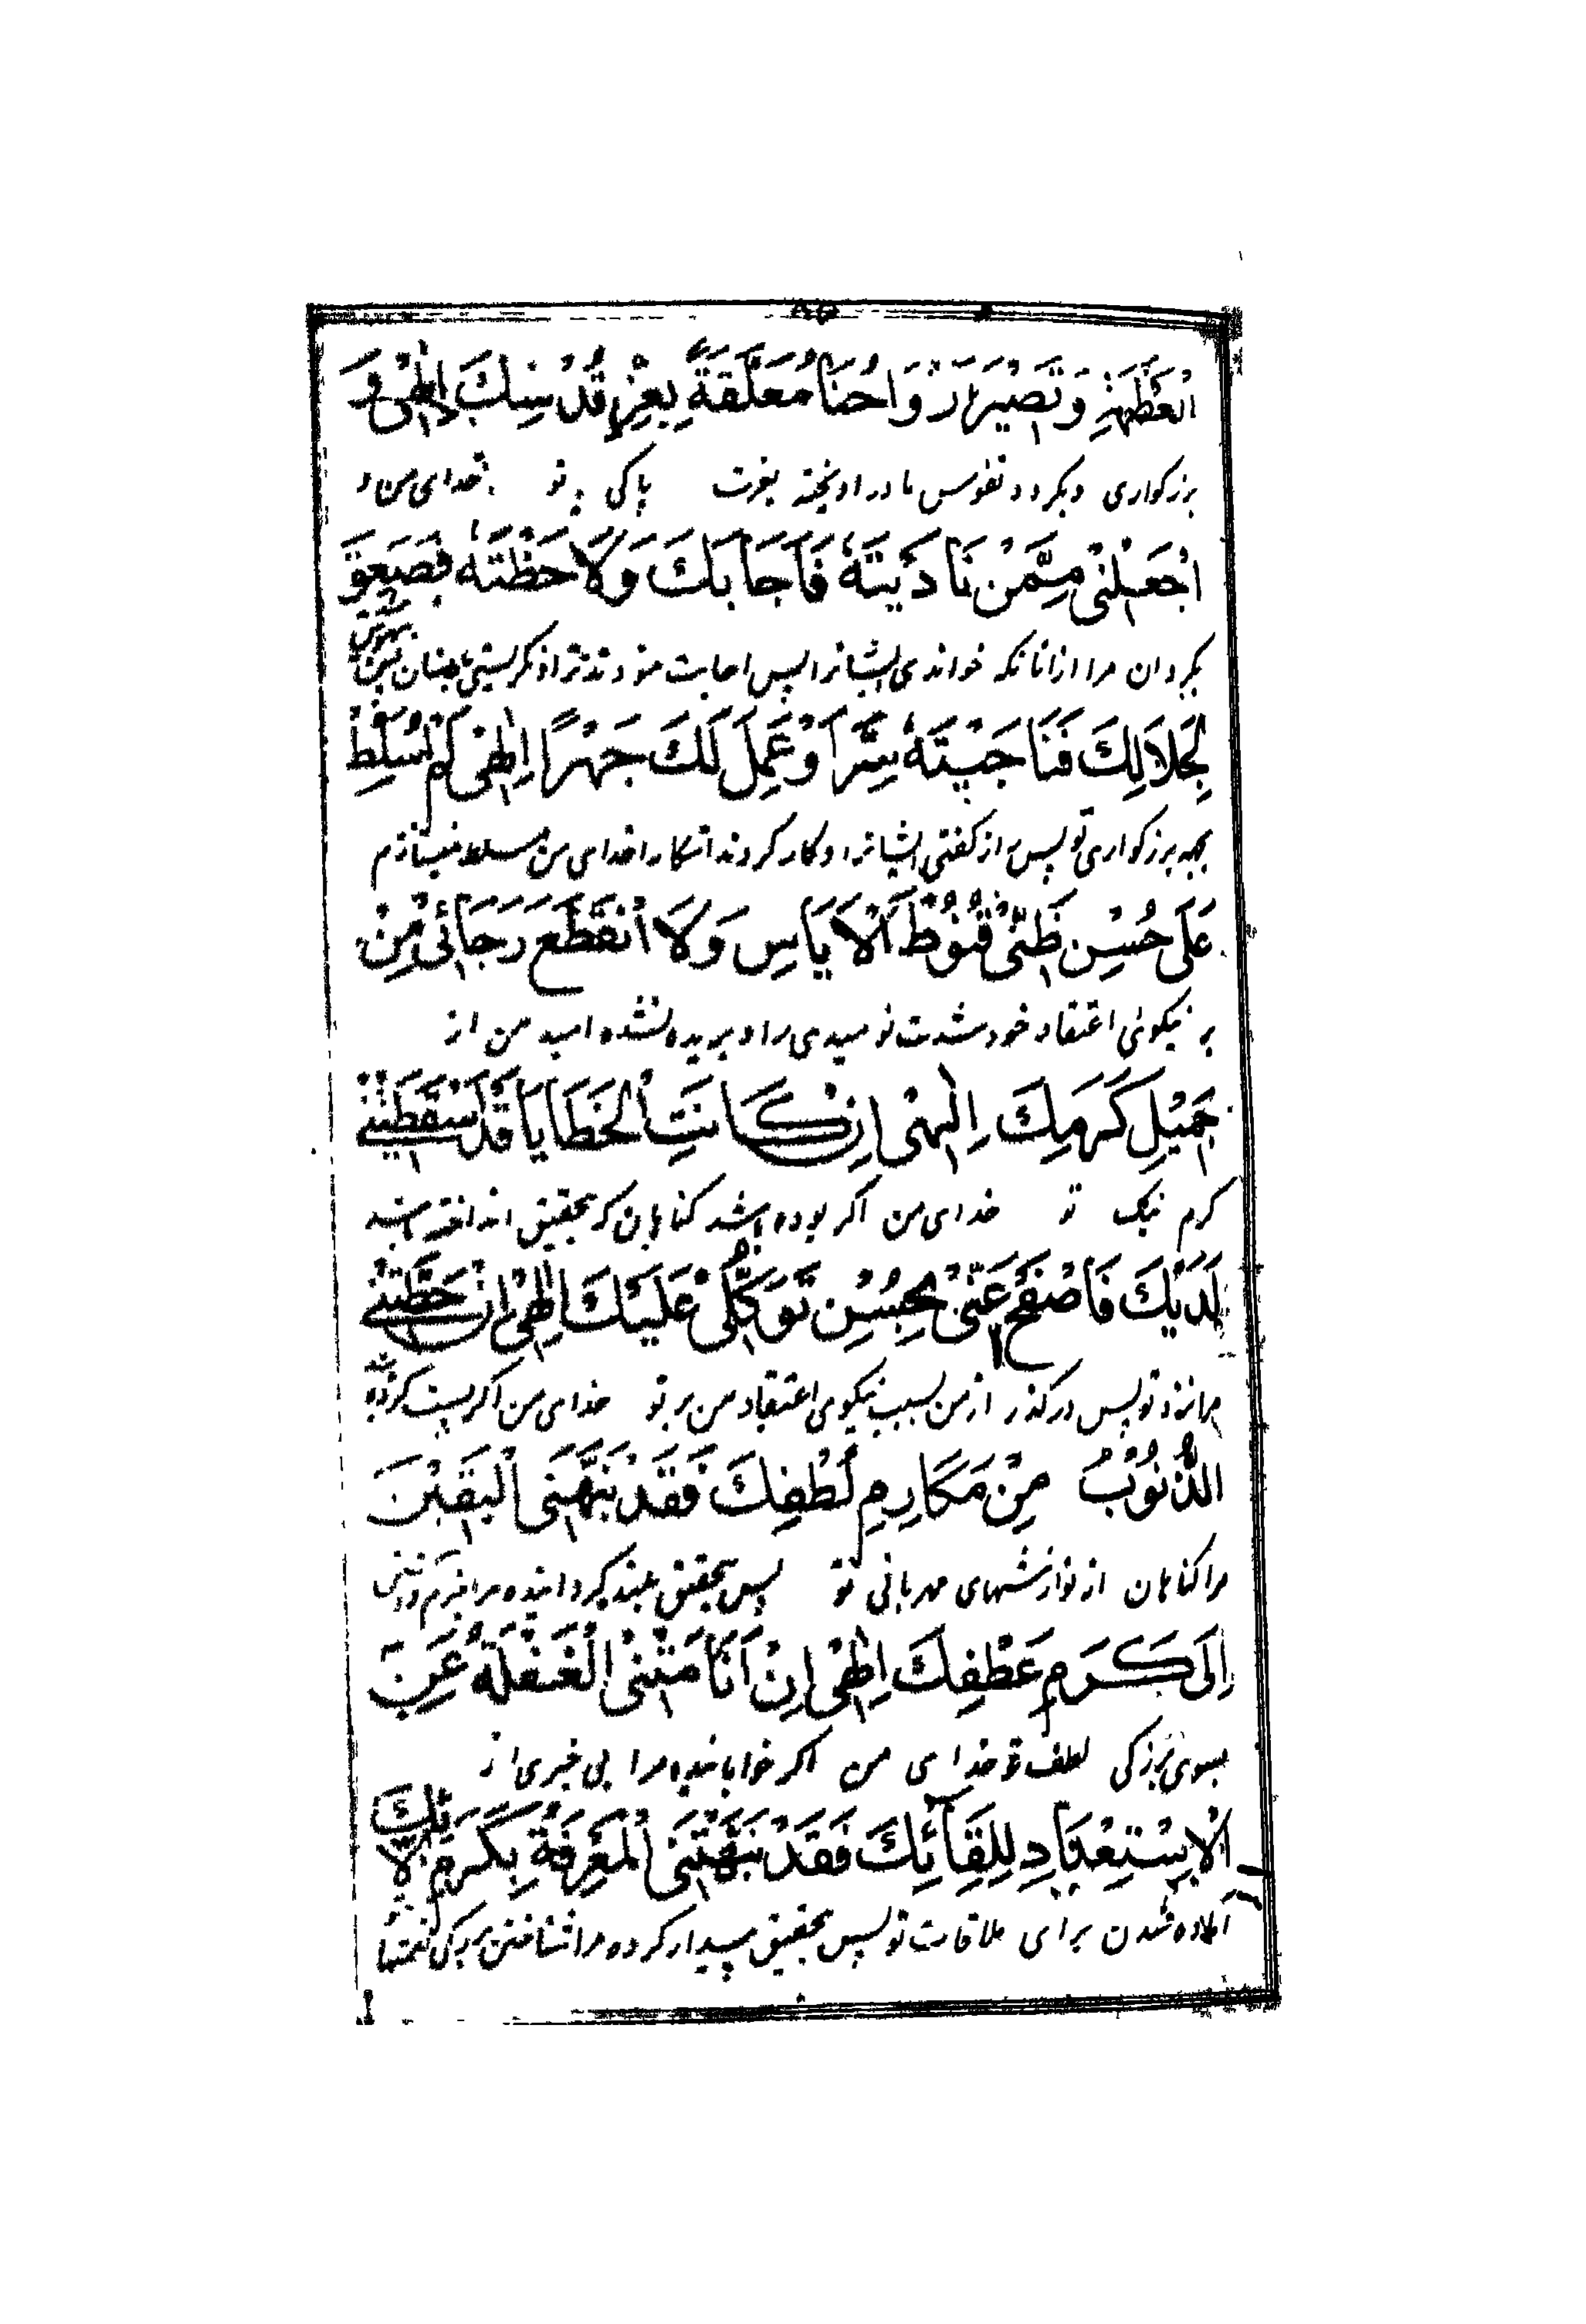 الْعَظَمَةِ وَتَصِیْرَ اَرْوَاحُنَا مُعَلَّقَةً بِعِزِّ قُدْسِكَ اِلٰهِیْ وَ
بزرکواری و بکردد نفوس ما در اویخته بعزت پاکی تو خدای من و
اجْعَلْنِیْ مِمَّنْ نَادَیْتَهٗ فَاَجَابَكَ وَلَاحَظْتَهٗ فَصَعِقَ
بکردان مرا ازانانکه خواندی ایشانرا پس اجابت نمودند ترا و نکریستی بایشان پس بیهوش
لِجَلَالِكَ فَنَاجَیْتَهٗ سِرًّا وَعَمِلَ لَكَ جَهْرًا اِلٰهِیْ لَمْ اُسَلِّطْ
بزرکواری تو پس راز کفتی ایشانرا و کار کردند اشکارا خدای من مسلط نمیسازم
عَلٰی حُسْنِ ظَنِّیْ قُنُوْطَ الْاَیَاسِ وَلَا انْقَطَعَ رَجَائِیْ مِنْ
بر نیکوئی اعتقاد خود شدت نومیدی را و بریده نشده امید من از
جَمِیْلِ كَرَمِكَ اِلٰهِیْ اِنْ كَانَتِ الْخَطَایَا قَدْ اَسْقَطَتْنِیْ
کرم نیک تو خدای من اکر بوده باشد کناهان که بتحقیق انداخته باشند
لَدَیْكَ فَاصْفَحْ عَنِّیْ بِحُسْنِ تَوَكُّلِیْ عَلَیْكَ اِلٰهِیْ اِنْ حَطَّتْنِیْ
مرا نزد تو پس درکذر از من بسبب نیکوی اعتقاد من بر تو خدای من اکر پست کرده
الذُّنُوْبُ مِنْ مَكَارِمِ لُطْفِكَ فَقَدْ نَبَّهَنِی الْیَقِیْنُ
مرا کناهان از نوازشهای مهربانی تو پس بتحقیق بلند کردانیده مرا
اِلٰی كَرَمِ عَطْفِكَ اِلٰهِیْ اِنْ اَنَامَتْنِیْ الْغَفْلَةُ عَنِ
بسوی بزرکی لطف تو خدای من اکر خوابانیده مرا بی خبری از
الْاِسْتِعْدَادِ لِلِقَائِكَ فَقَدْ نَبَّهَتْنِی الْمَعْرِفَةُ بِكَرَمِ اٰلَائِكَ
آماده شدن برای ملاقات تو پس بتحقیق بیدار کرده مرا شناختن بزرکی نعمتها